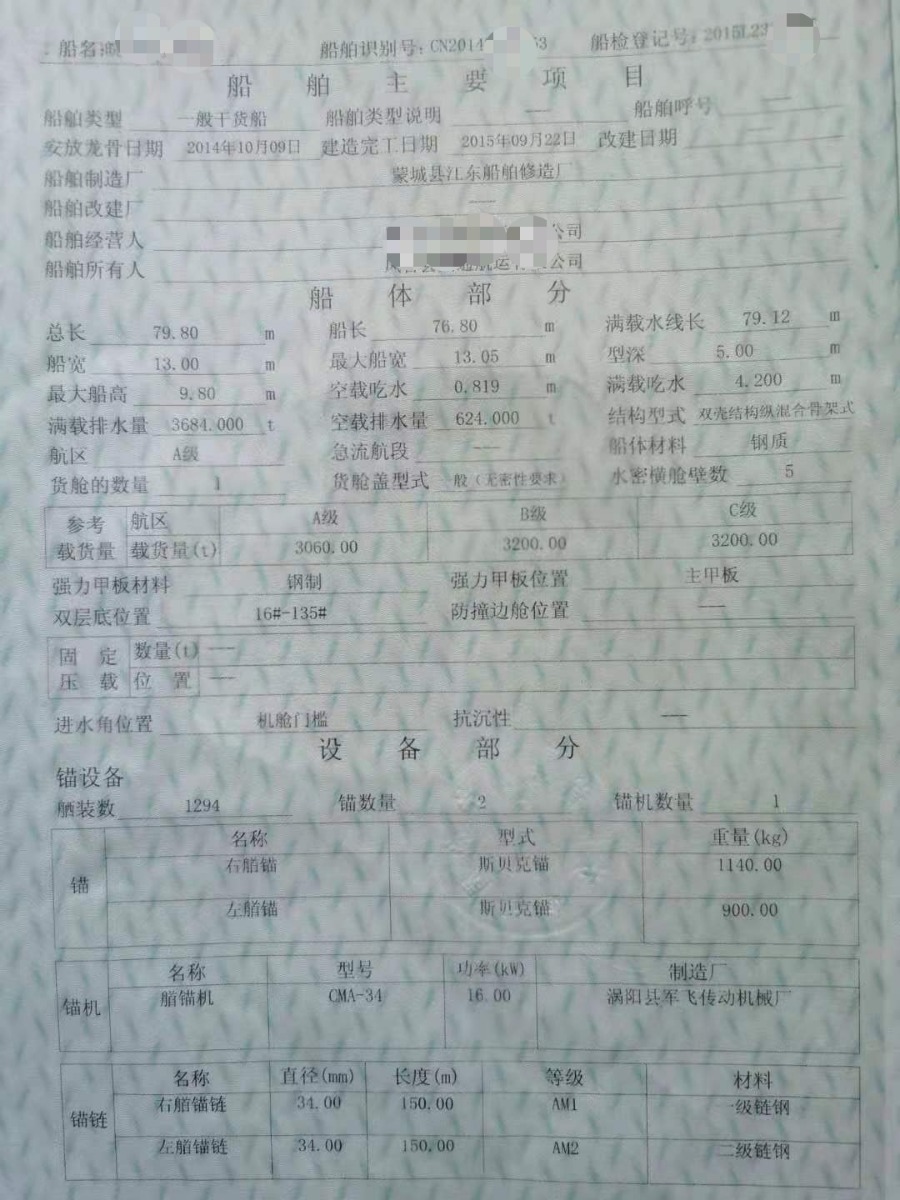 船名: 船舶识别号:CN2014 53 船检登记号:2015L23
船舶主要项目
船舶类型 一般干货船 船舶类型说明 —— 船舶呼号 ——
安放龙骨日期 2014年10月09日 建造完工日期 2015年09月22日 改建日期 ——
船舶制造厂 蒙城县江东船舶修造厂
船舶改建厂 ——
船舶经营人 公司
船舶所有人 航运 公司
船体部分
总长 79.80 m 船长 76.80 m 满载水线长 79.12 m
船宽 13.00 m 最大船宽 13.05 m 型深 5.00 m
最大船高 9.80 m 空载吃水 0.819 m 满载吃水 4.200 m
满载排水量 3684.000 t 空载排水量 624.000 t 结构型式 双壳结构纵混合骨架式
航区 A级 急流航段 —— 船体材料 钢质
货舱的数量 1 货舱盖型式 般(无密性要求) 水密横舱壁数 5
参考 航区 A级 B级 C级
载货量 载货量(t) 3060.00 3200.00 3200.00
强力甲板材料 钢制 强力甲板位置 主甲板
双层底位置 16#-135# 防撞边舱位置 ——
固定 数量(t) ——
压载 位置 ——
进水角位置 机舱门槛 抗沉性 ——
设备部分
锚设备
舾装数 1294 锚数量 2 锚机数量 1
名称 型式 重量(kg)
锚 右艏锚 斯贝克锚 1140.00
左艏锚 斯贝克锚 900.00
名称 型号 功率(kW) 制造厂
锚机 艏锚机 CMA-34 16.00 涡阳县军飞传动机械厂
名称 直径(mm) 长度(m) 等级 材料
锚链 右艏锚链 34.00 150.00 AM1 一级链钢
左艏锚链 34.00 150.00 AM2 二级链钢